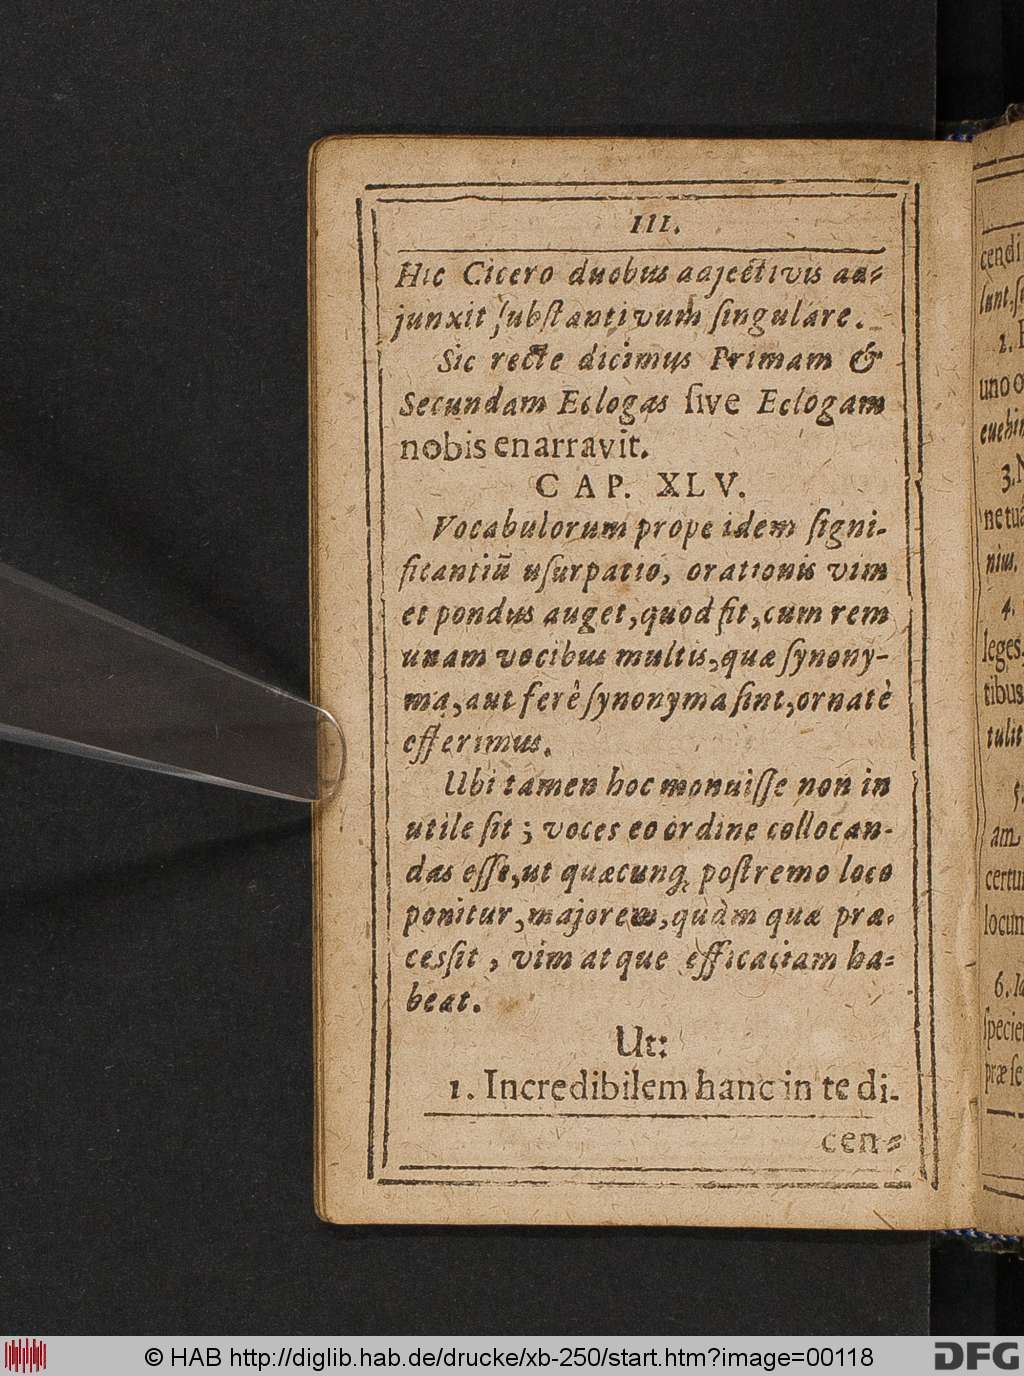 III.
Hic Cicero duobus adjectivis ad-
junxit ſubſtantivum ſingulare.
Sic recte dicimus Primam &
Secundam Eclogas ſive Eclogam
nobis enarravit.
CAP. XLV.
Vocabulorum prope idem ſigni-
ficantiũ uſurpatio, orationis vim
et pondus auget, quod fit, cum rem
unam vocibus multis, quæ ſynony-
ma, aut ferè ſynonyma ſint, ornatè
efferimus.
Ubi tamen hoc monuiſſe non in
utile ſit; voces eo ordine collocan-
das eſſe, ut quæcunq; poſtremo loco
ponitur, majorem, quàm quæ præ-
cesſit, vim atque efficaciam ha-
beat.
Ut:
1. Incredibilem hanc in te di-
cen-
cendi
ſunt. ſi
1.
uno o
3.
ne tua
nius.
4.
leges.
tibus
tulit
am
locum
6.
ſpecie
præ ſe
© HAB http://diglib.hab.de/drucke/xb-250/start.htm?image=00118
DFG